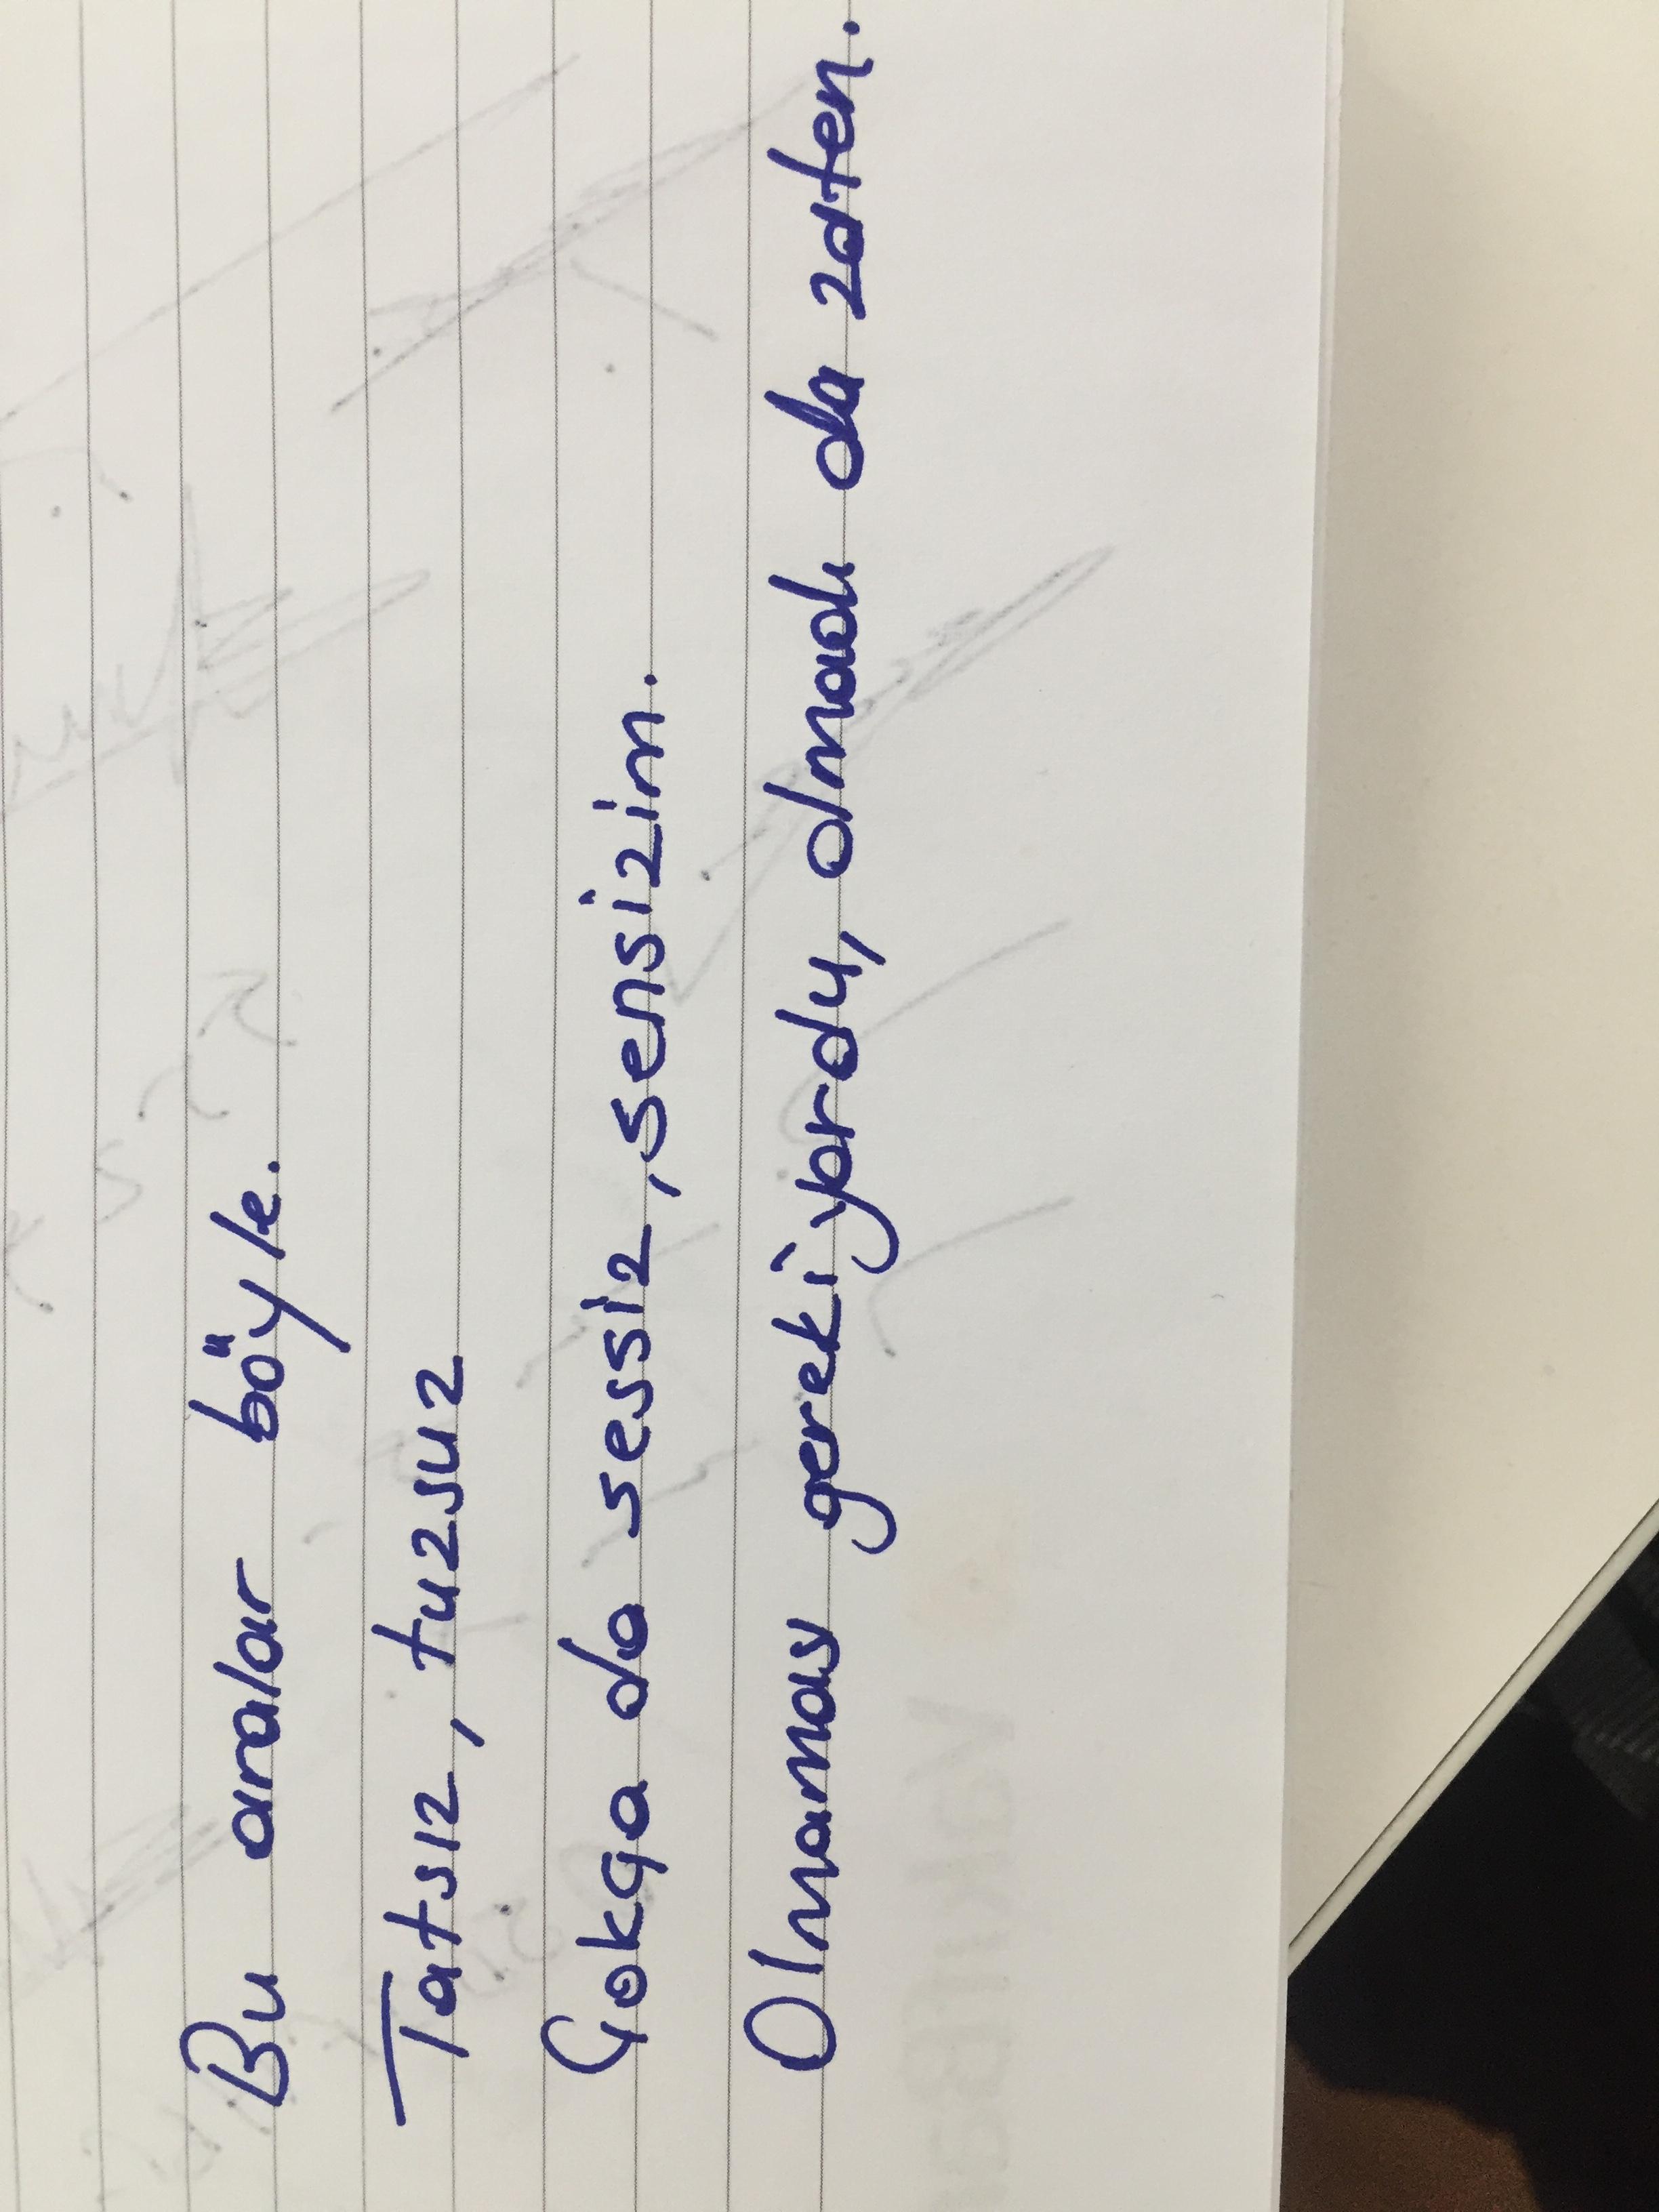 Bu aralar böyle.
Tatsız, tuzsuz
Çokça da sessiz, sensizim.
Olmaması gerekiyordu, olmadı da zaten.